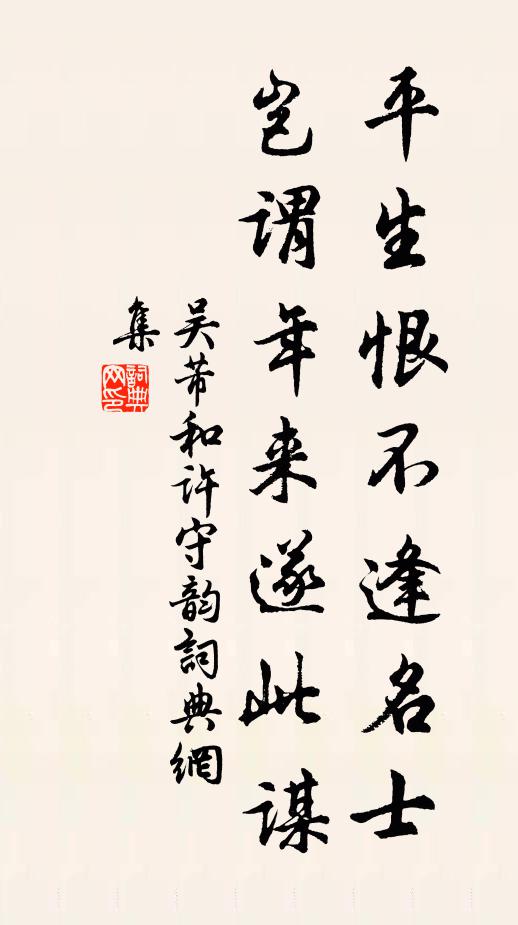 平生恨不逢名士
岂谓年来遂此谋
吴芾和许守韵詞典網
集
詞典网印